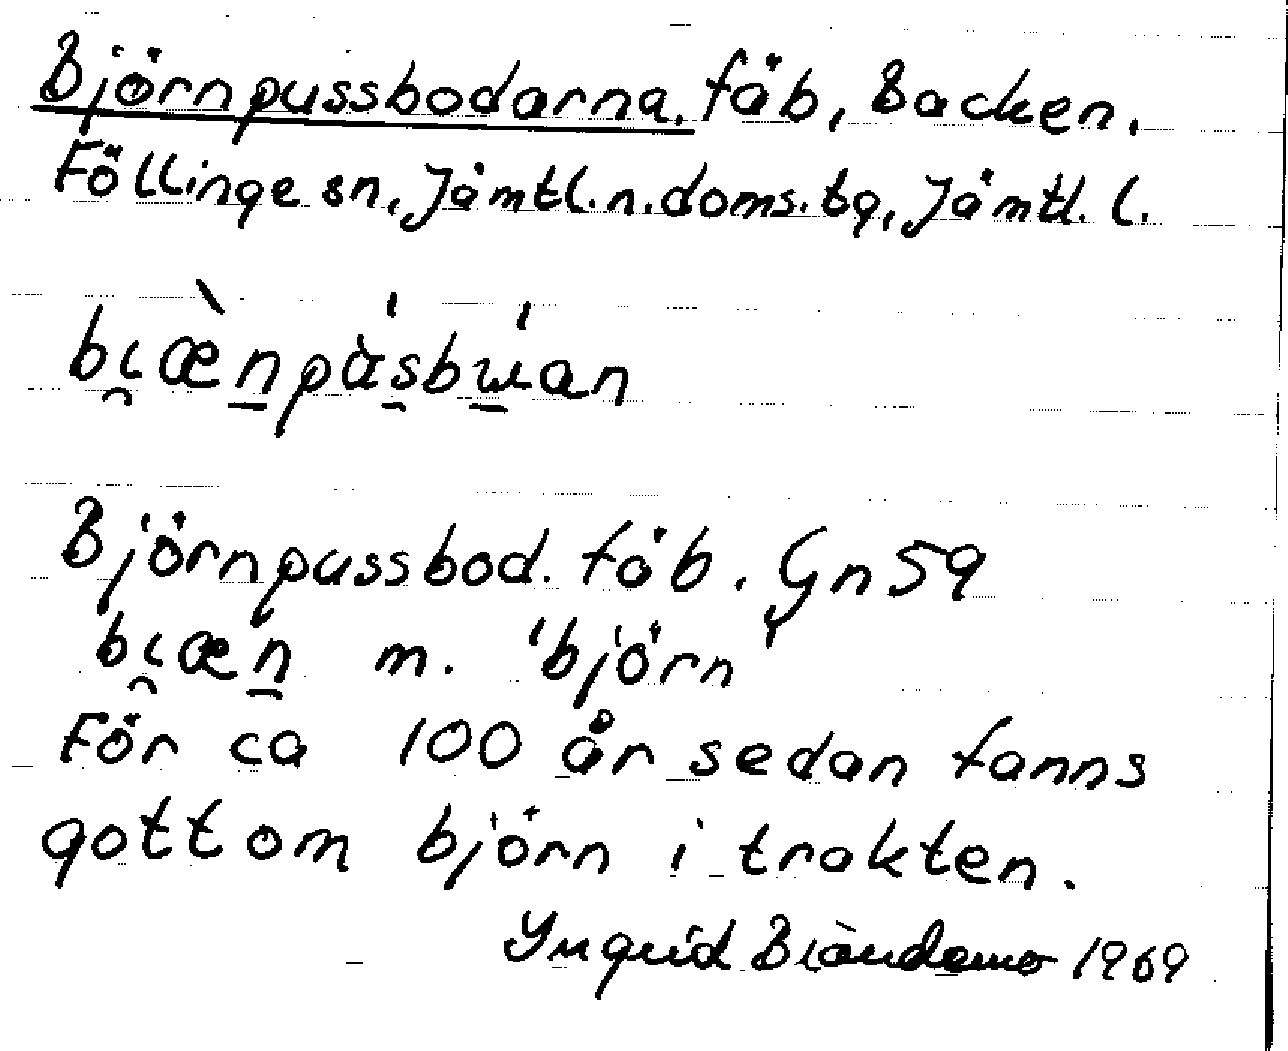 Björnpussbodarna, fäb, Backen,
Föllinge sn, Jämtl.n.doms.tg, Jämtl. l.
bι̯æ̀n̲pásbẃan
Björnpussbod. fäb. Gn 59
bι̯æn̲ m. 'björn'
För ca 100 år sedan fanns
gott om björn i trakten.
Yngrid 1969